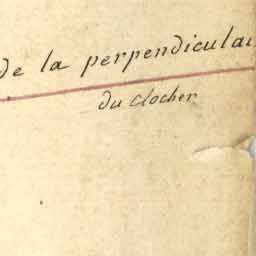 de la perpendiculai
du Clocher